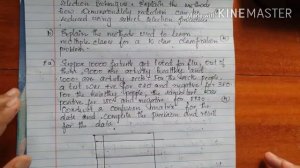 Selection technique. Explain the methods
how dimensionality reduction can be
reduced using subset selection procedure
b) Explain the methods used to learn
multiple classes for a K class classification (4)
problem.
5a) Suppose 10000 patients get tested for flu; out of
them, 9000 are actually healthy and
1000 are actually sick. For the sick people,
a test was +ve for 620 and negative for 380.
For the healthy people, the same test was
positive for 180 and negative for 8820.
Construct a confusion matrix for the
data and compute the precision and recall
for the data.
Made With
KINEMASTER